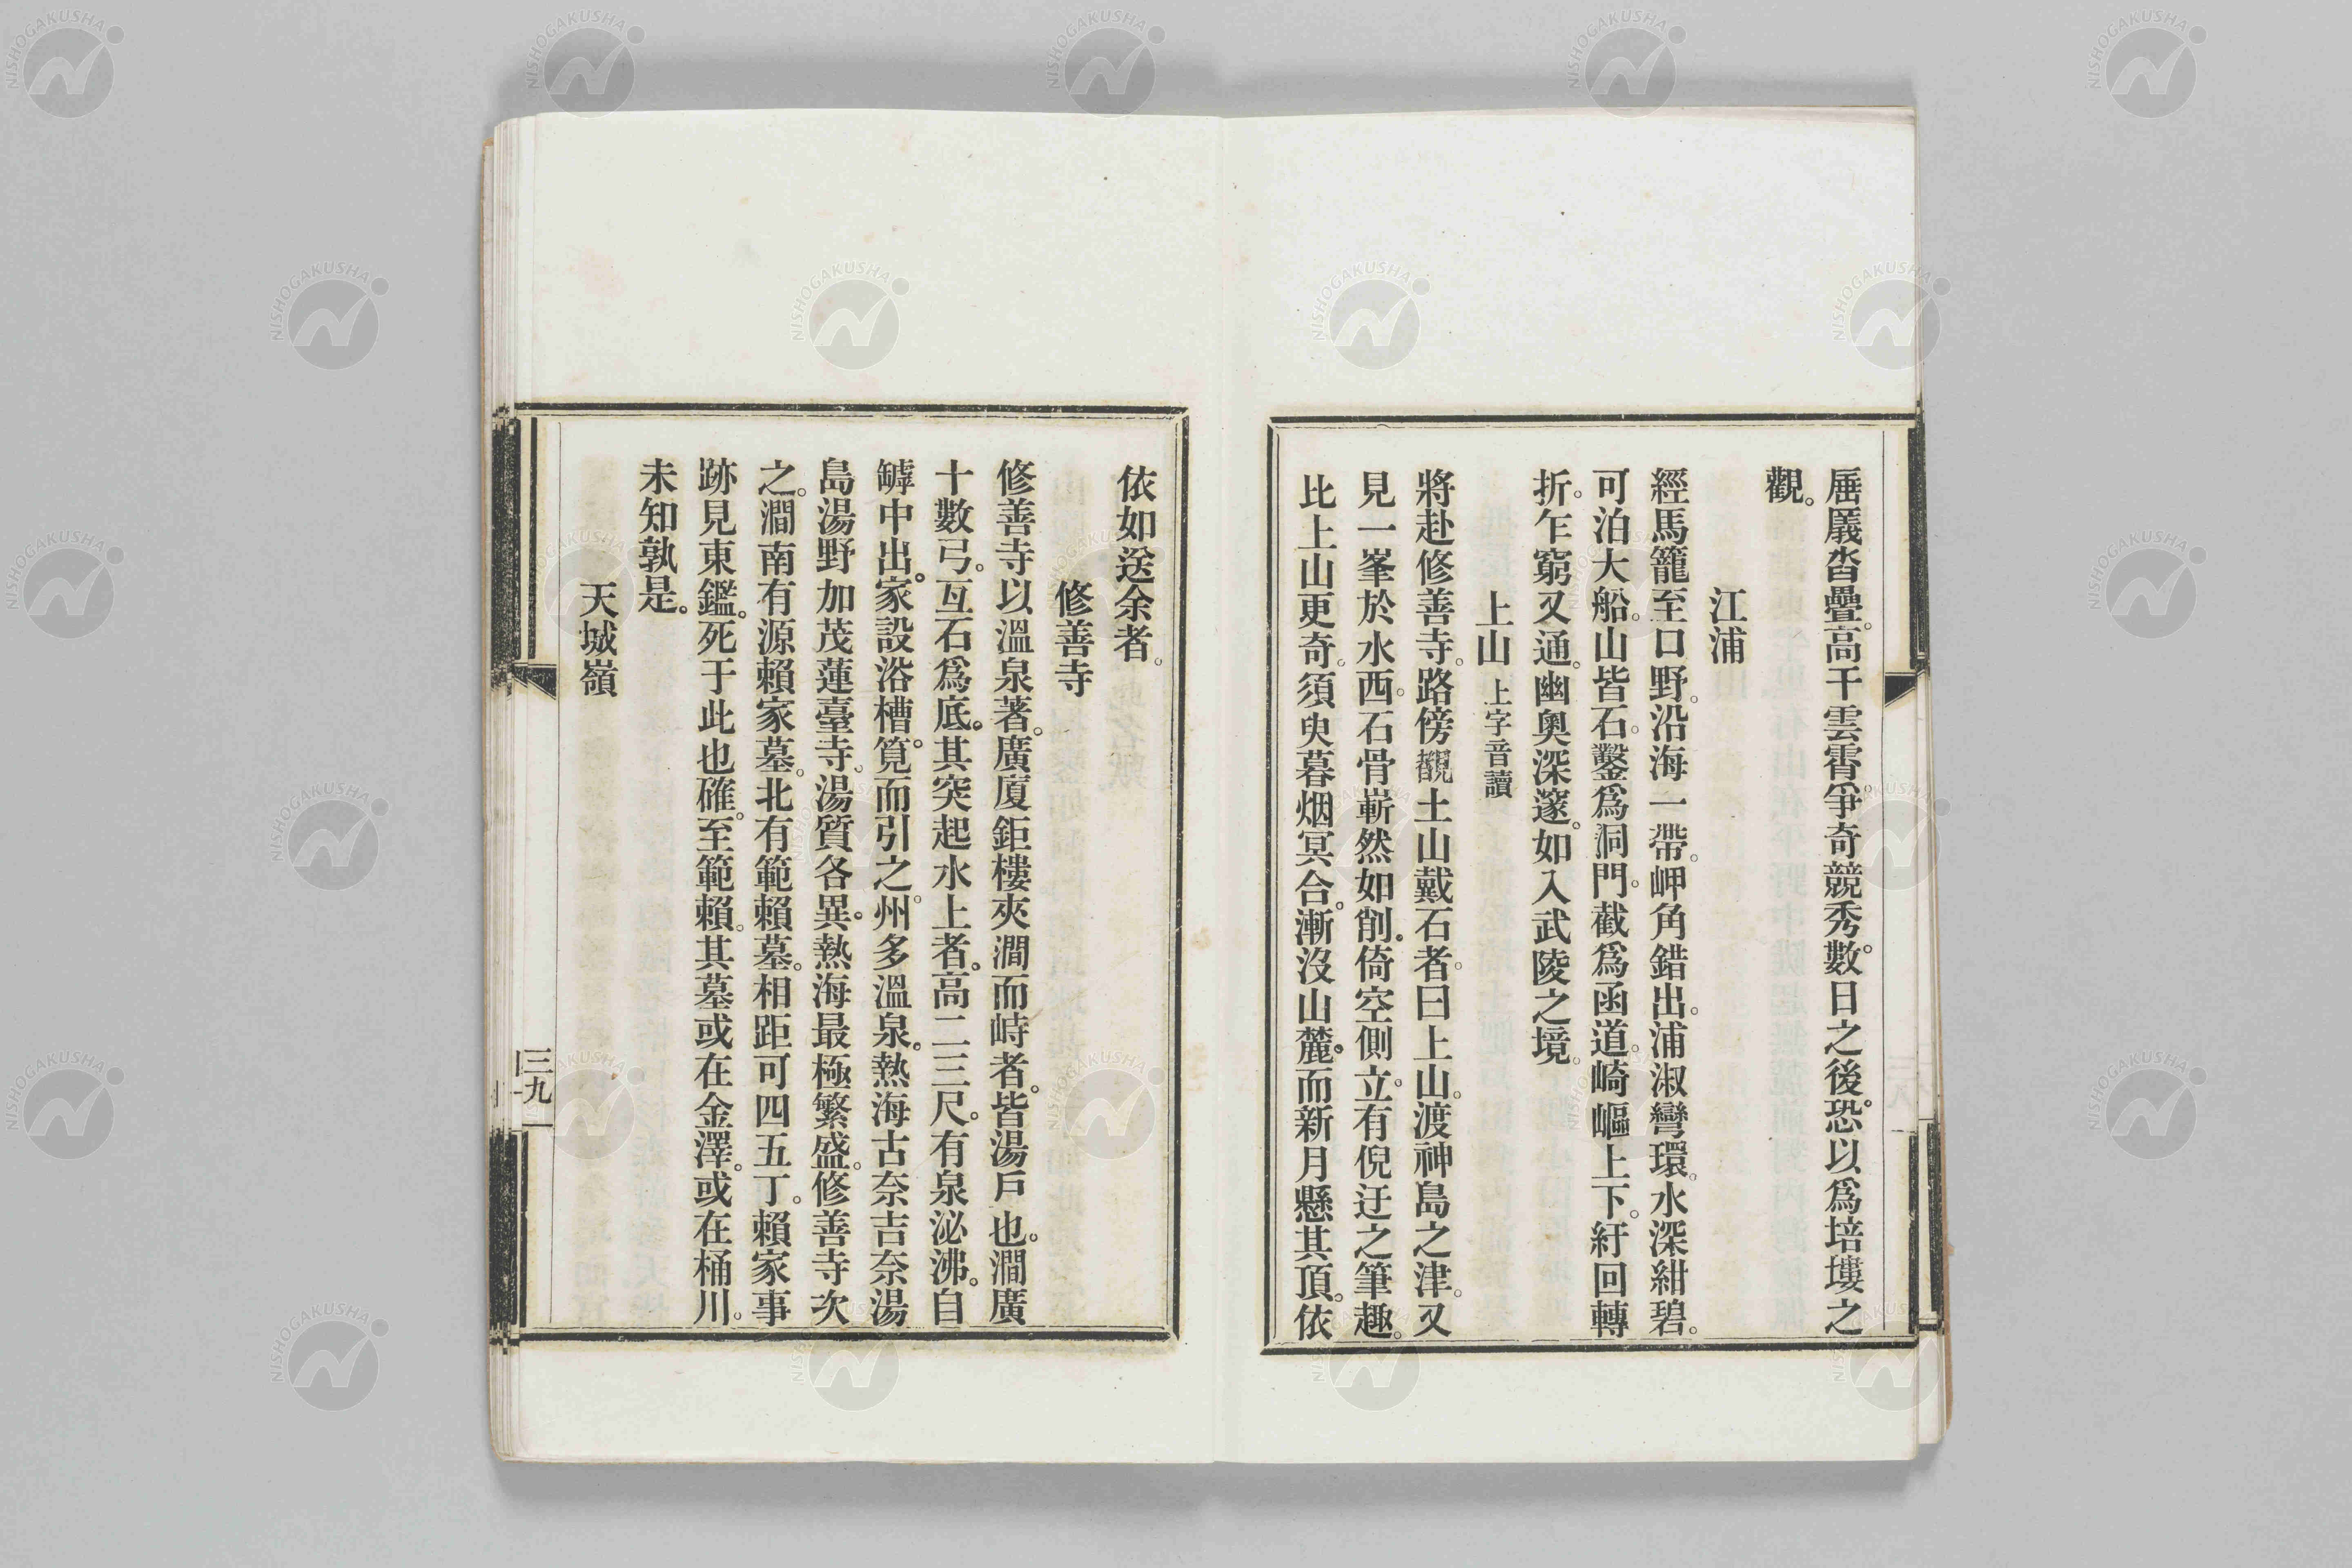 厜㕒沓疊。高干雲霄。爭奇競秀。數日之後。恐以爲培塿之
觀。
江浦
經馬籠至口野。沿海一帶。岬角錯出。浦溆彎環。水深紺碧。
可泊大船。山皆石。鑿爲洞門。截爲函道。崎嶇上下。紆回轉
折。乍窮又通。幽奧深邃。如入武陵之境。
上山 上字音讀
將赴修善寺。路傍觀土山戴石者。曰上山。渡神島之津。又
見一峯於水西。石骨嶄然如削。倚空側立。有倪迂之筆趣。
比上山更奇。須臾暮烟冥合。漸沒山麓。而新月懸其頂。依
依如送余者。
修善寺
修善寺以溫泉著。廣廈鉅樓夾澗而峙者。皆湯戶也。澗廣
十數弓。互石爲底。其突起水上者。高二三尺。有泉泌沸。自
罅中出。家設浴槽。筧而引之。州多溫泉。熱海古奈吉奈湯
島湯野加茂蓮臺寺。湯質各異。熱海最極繁盛。修善寺次
之。澗南有源賴家墓。北有範賴墓。相距可四五丁。賴家事
跡見東鑑。死于此也確。至範賴。其墓或在金澤。或在桶川。
未知孰是。
天城嶺
三九
NISHOGAKUSHA